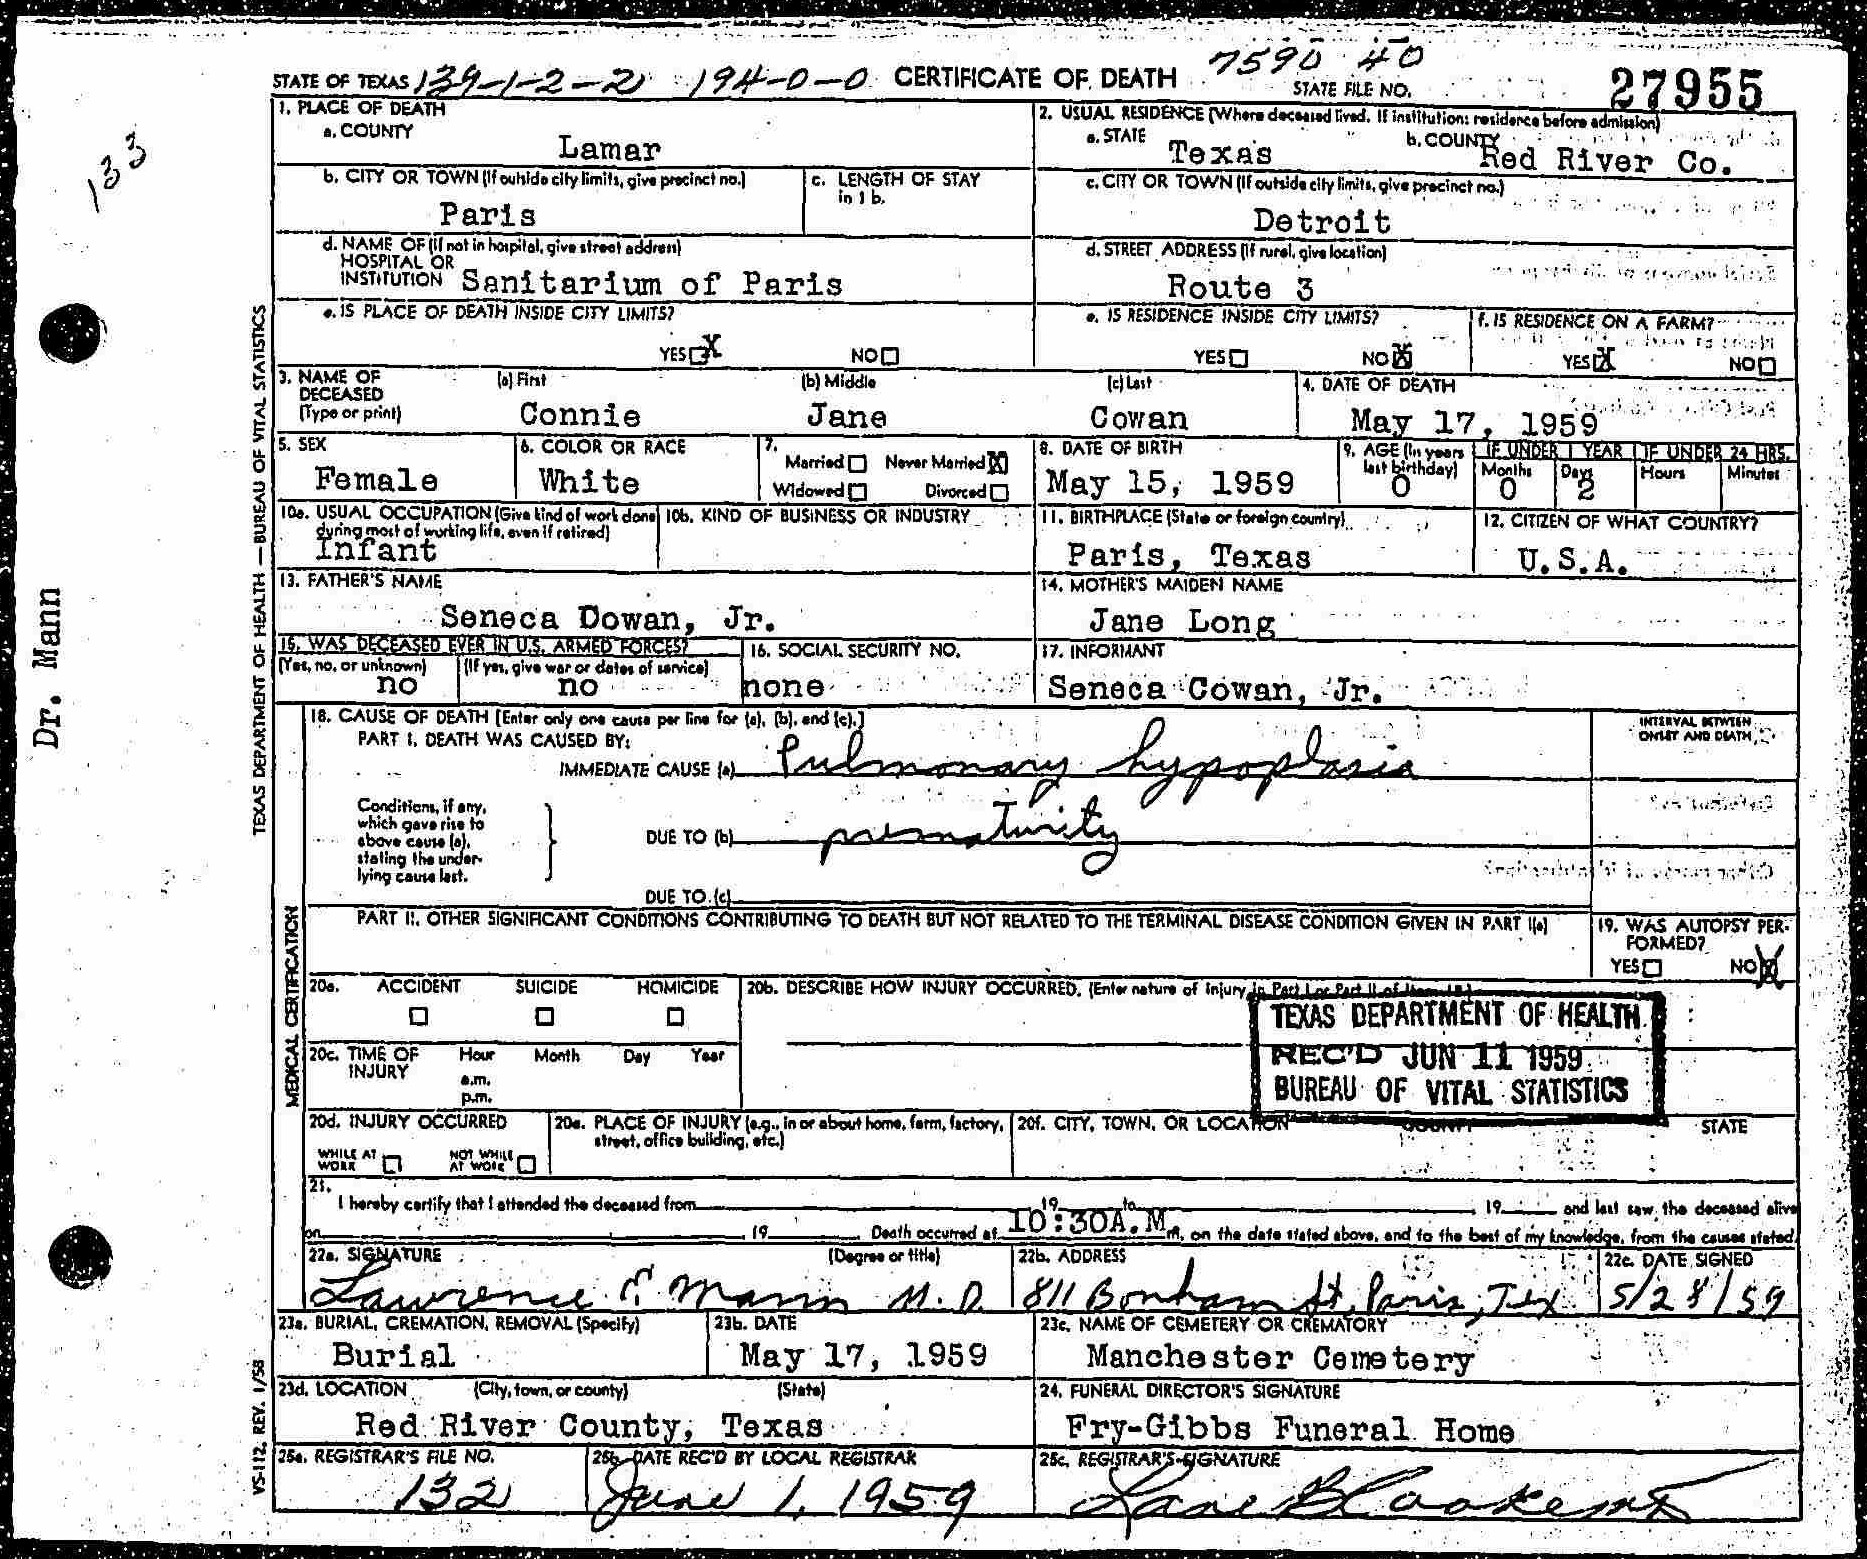 7590 40
STATE OF TEXAS 139-1-2-2 194-0-0 CERTIFICATE OF DEATH STATE FILE NO. 27955
133
1. PLACE OF DEATH
a. COUNTY
Lamar
2. USUAL RESIDENCE (Where deceased lived. If institution: residence before admission)
a. STATE
Texas
b. COUNTY
Red River Co.
b. CITY OR TOWN (If outside city limits, give precinct no.)
Paris
c. LENGTH OF STAY
in 1 b.
c. CITY OR TOWN (If outside city limits, give precinct no.)
Detroit
d. NAME OF (If not in hospital, give street address)
HOSPITAL OR
INSTITUTION Sanitarium of Paris
d. STREET ADDRESS (If rural, give location)
Route 3
e. IS PLACE OF DEATH INSIDE CITY LIMITS?
YES X NO
e. IS RESIDENCE INSIDE CITY LIMITS?
YES NO X
f. IS RESIDENCE ON A FARM?
YES X NO
3. NAME OF
DECEASED
(Type or print)
(a) First
Connie
(b) Middle
Jane
(c) Last
Cowan
4. DATE OF DEATH
May 17, 1959
5. SEX
Female
6. COLOR OR RACE
White
7.
Married Never Married X
Widowed Divorced
8. DATE OF BIRTH
May 15, 1959
9. AGE (In years
last birthday)
0
IF UNDER 1 YEAR
Months Days
0 2
IF UNDER 24 HRS.
Hours Minutes
10a. USUAL OCCUPATION (Give kind of work done
during most of working life, even if retired)
Infant
10b. KIND OF BUSINESS OR INDUSTRY
11. BIRTHPLACE (State or foreign country)
Paris, Texas
12. CITIZEN OF WHAT COUNTRY?
U.S.A.
13. FATHER'S NAME
Seneca Dowan, Jr.
14. MOTHER'S MAIDEN NAME
Jane Long
15. WAS DECEASED EVER IN U.S. ARMED FORCES?
(Yes, no, or unknown) (If yes, give war or dates of service)
no no
16. SOCIAL SECURITY NO.
none
17. INFORMANT
Seneca Cowan, Jr.
18. CAUSE OF DEATH [Enter only one cause per line for (a), (b), and (c).]
PART I. DEATH WAS CAUSED BY:
IMMEDIATE CAUSE (a) Pulmonary hypoplasia
INTERVAL BETWEEN
ONSET AND DEATH
Conditions, if any,
which gave rise to
above cause (a),
stating the under-
lying cause last.
DUE TO (b) prematurity
DUE TO (c)
PART II. OTHER SIGNIFICANT CONDITIONS CONTRIBUTING TO DEATH BUT NOT RELATED TO THE TERMINAL DISEASE CONDITION GIVEN IN PART I(a)
19. WAS AUTOPSY PER-
FORMED?
YES NO X
20a. ACCIDENT SUICIDE HOMICIDE
20b. DESCRIBE HOW INJURY OCCURRED. (Enter nature of injury in Part I or Part II of Item 18.)
TEXAS DEPARTMENT OF HEALTH
REC'D JUN 11 1959
BUREAU OF VITAL STATISTICS
20c. TIME OF
INJURY
Hour Month Day Year
a.m.
p.m.
20d. INJURY OCCURRED
WHILE AT
WORK
NOT WHILE
AT WORK
20e. PLACE OF INJURY (e.g., in or about home, farm, factory,
street, office building, etc.)
20f. CITY, TOWN, OR LOCATION COUNTY STATE
21.
I hereby certify that I attended the deceased from 19 to 19 and last saw the deceased alive
on 19 Death occurred at 10:30A.M m, on the date stated above, and to the best of my knowledge, from the causes stated.
22a. SIGNATURE (Degree or title)
Lawrence E Mann M.D.
22b. ADDRESS
811 Bonham St, Paris, Tex
22c. DATE SIGNED
5/28/59
23a. BURIAL, CREMATION, REMOVAL (Specify)
Burial
23b. DATE
May 17, 1959
23c. NAME OF CEMETERY OR CREMATORY
Manchester Cemetery
23d. LOCATION (City, town, or county) (State)
Red River County, Texas
24. FUNERAL DIRECTOR'S SIGNATURE
Fry-Gibbs Funeral Home
25a. REGISTRAR'S FILE NO.
132
25b. DATE REC'D BY LOCAL REGISTRAR
June 1, 1959
25c. REGISTRAR'S SIGNATURE
MEDICAL CERTIFICATION
TEXAS DEPARTMENT OF HEALTH — BUREAU OF VITAL STATISTICS
VS-112. REV. 1/58
Dr. Mann